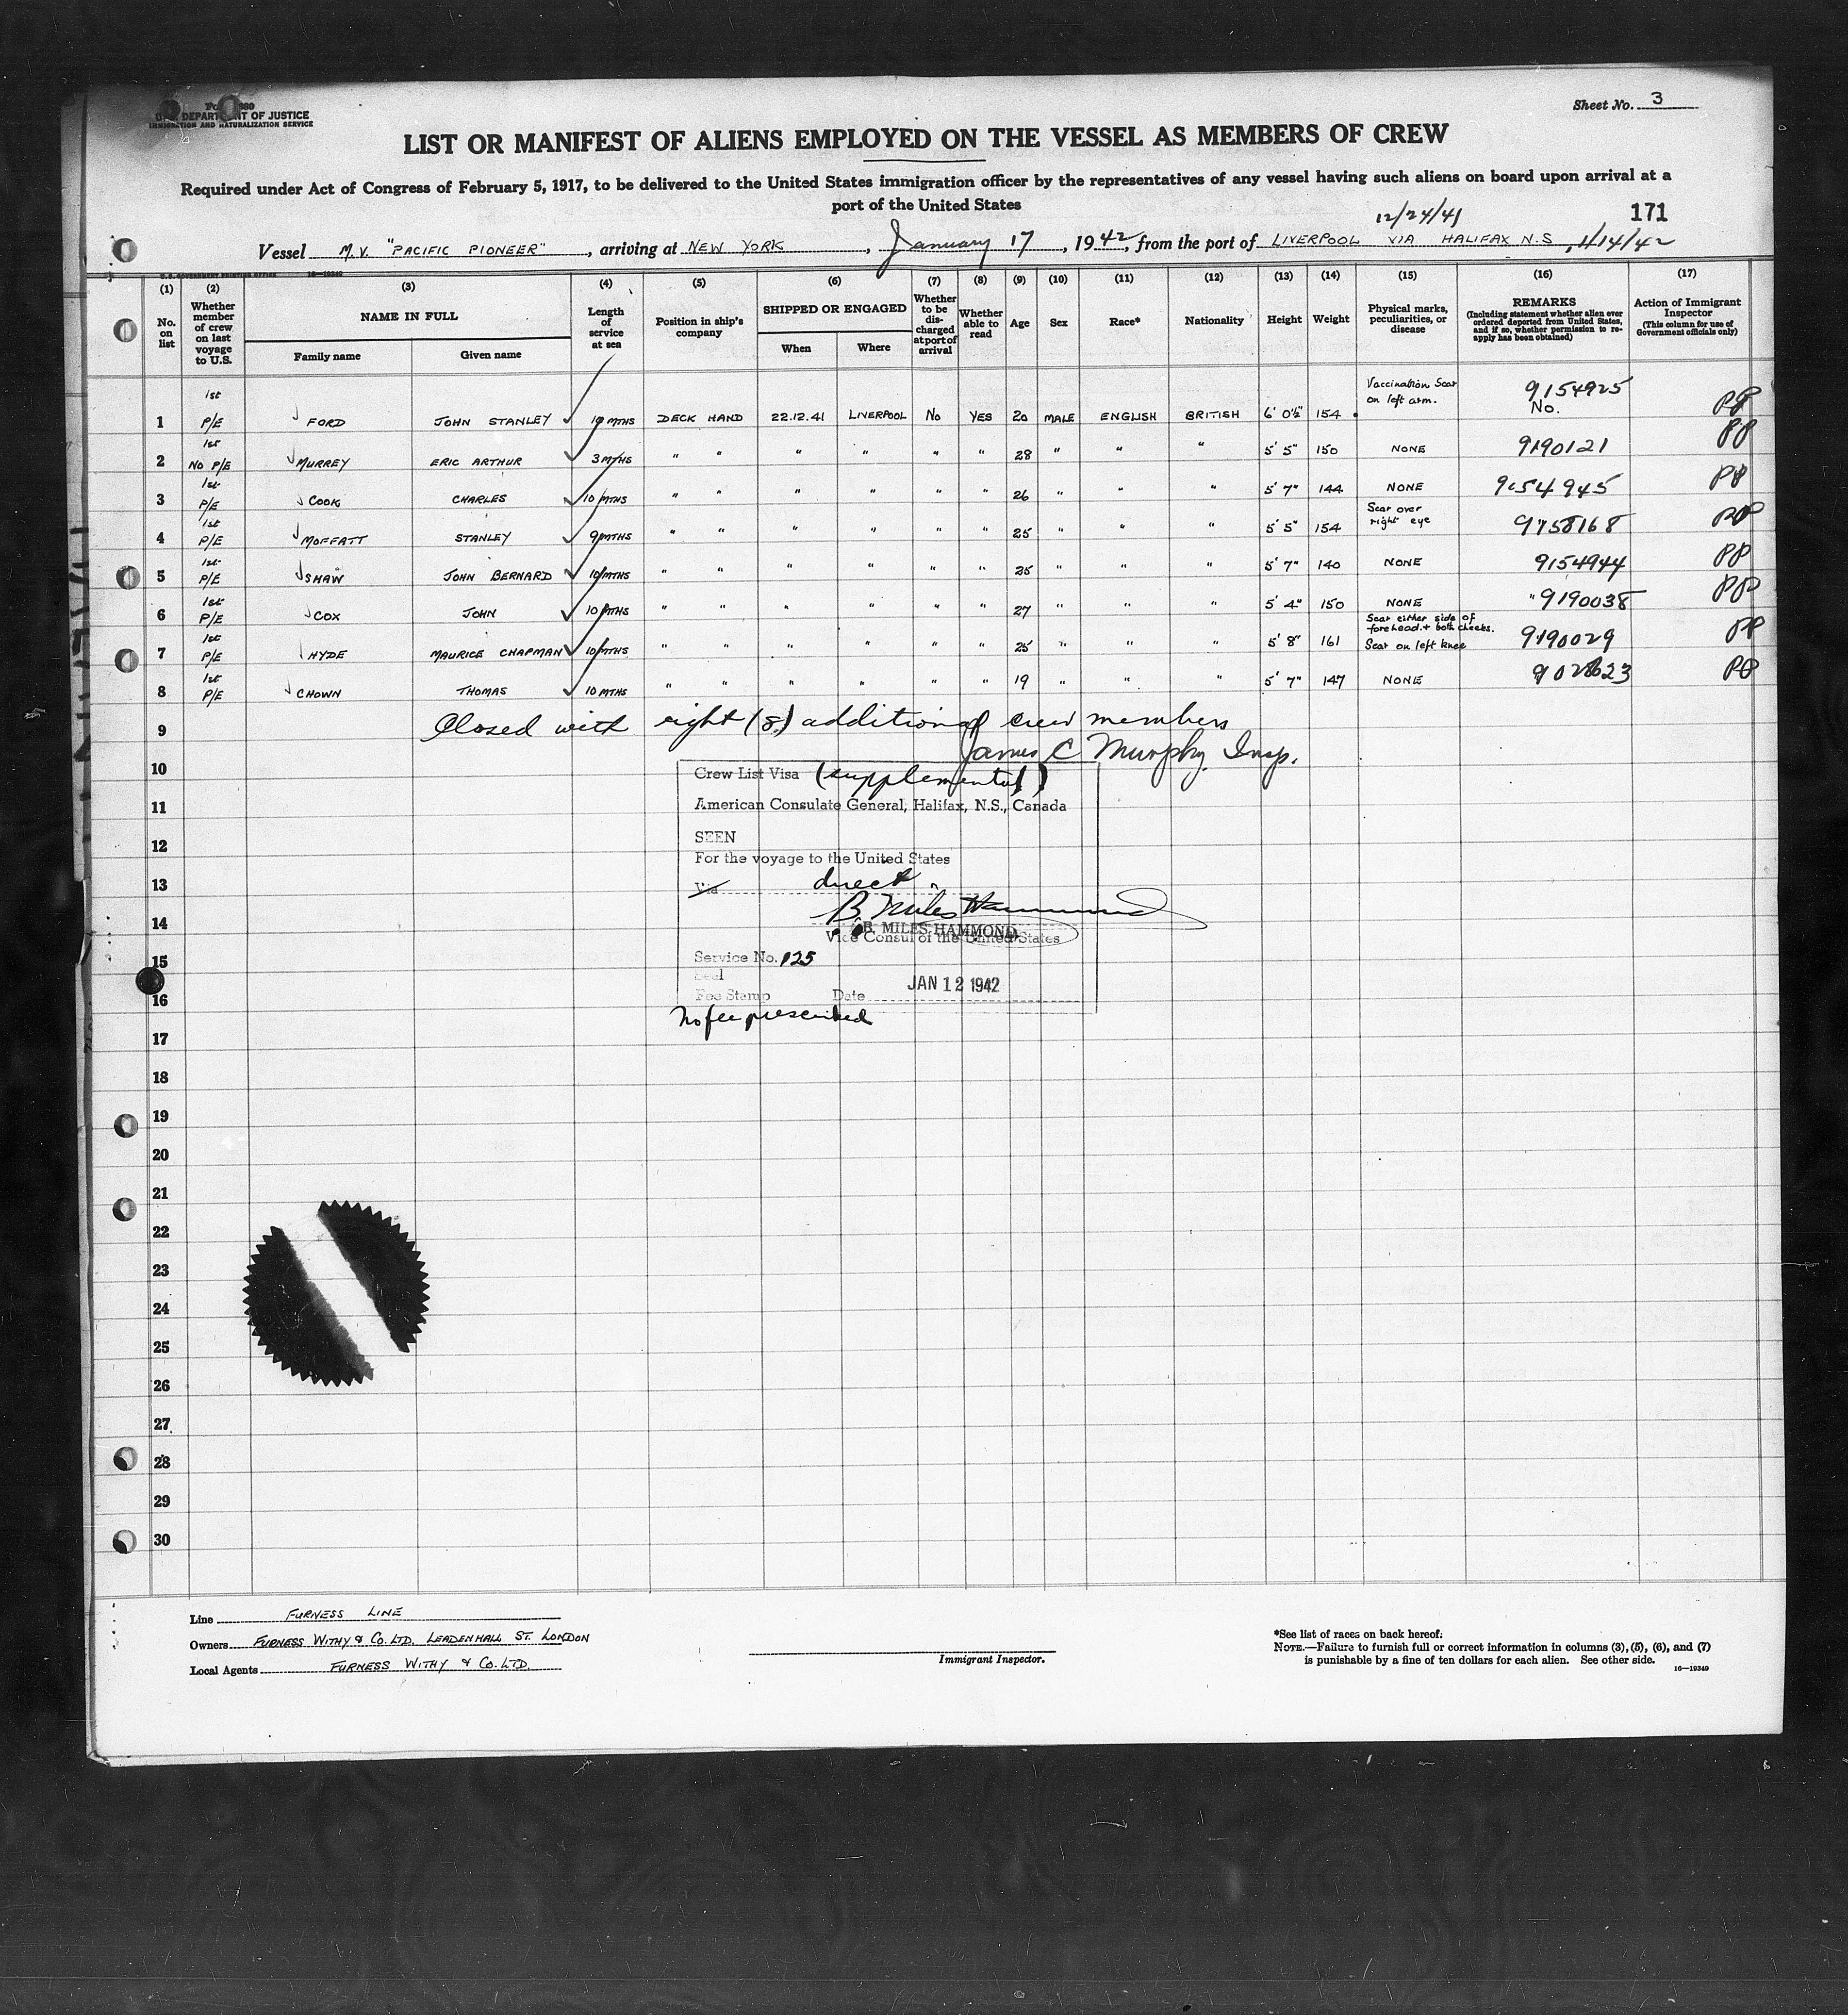 Sheet No. 3
DEPARTMENT OF JUSTICE
IMMIGRATION AND NATURALIZATION SERVICE
LIST OR MANIFEST OF ALIENS EMPLOYED ON THE VESSEL AS MEMBERS OF CREW
Required under Act of Congress of February 5, 1917, to be delivered to the United States immigration officer by the representatives of any vessel having such aliens on board upon arrival at a
port of the United States
12/24/41 171
Vessel M.V. "PACIFIC PIONEER", arriving at NEW YORK, January 17, 1942, from the port of LIVERPOOL VIA HALIFAX N.S, 1/14/42
U.S. GOVERNMENT PRINTING OFFICE 16—19349
(1) (2) (3) (4) (5) (6) (7) (8) (9) (10) (11) (12) (13) (14) (15) (16) (17)
No. on list
Whether member of crew on last voyage to U.S.
NAME IN FULL
Family name Given name
Length of service at sea
Position in ship's company
SHIPPED OR ENGAGED
When Where
Whether to be discharged at port of arrival
Whether able to read
Age Sex Race* Nationality Height Weight
Physical marks, peculiarities, or disease
REMARKS
(Including statement whether alien ever ordered deported from United States, and if so, whether permission to reapply has been obtained)
Action of Immigrant Inspector
(This column for use of Government officials only)
1 1st P/E FORD JOHN STANLEY 10 MTHS DECK HAND 22.12.41 LIVERPOOL No YES 20 MALE ENGLISH BRITISH 6' 0½" 154 Vaccination Scar on left arm. 9154925 No. PP
2 1st NO P/E MURREY ERIC ARTHUR 3 MTHS " " " " " " 28 " " " 5' 5" 150 NONE 9190121 PP
3 1st P/E COOK CHARLES 10 MTHS " " " " " " 26 " " " 5' 7" 144 NONE 9154945 PP
4 1st P/E MOFFATT STANLEY 9 MTHS " " " " " " 25 " " " 5' 5" 154 Scar over right eye 9758168 PP
5 1st P/E SHAW JOHN BERNARD 10 MTHS " " " " " " 25 " " " 5' 7" 140 NONE 9154944 PP
6 1st P/E COX JOHN 10 MTHS " " " " " " 27 " " " 5' 4" 150 NONE " 9190038 PP
7 1st P/E HYDE MAURICE CHAPMAN 10 MTHS " " " " " " 25 " " " 5' 8" 161 Scar either side of forehead + both cheeks. Scar on left knee 9190029 PP
8 1st P/E CHOWN THOMAS 10 MTHS " " " " " " 19 " " " 5' 7" 147 NONE PP
9 Closed with eight (8) additional crew members
James C Murphy Insp.
10 Crew List Visa (supplemental)
11 American Consulate General, Halifax, N.S., Canada
12 SEEN
For the voyage to the United States
13 Via direct
14 B. Miles Hammond
B. MILES HAMMOND
Vice Consul of the United States
15 Service No. 125
Seal
16 Fee Stamp Date JAN 12 1942
No fee prescribed
17
18
19
20
21
22
23
24
25
26
27
28
29
30
Line FURNESS LINE
Owners FURNESS WITHY & CO. LTD. LEADENHALL ST. LONDON
Local Agents FURNESS WITHY & CO. LTD.
Immigrant Inspector.
*See list of races on back hereof.
NOTE.—Failure to furnish full or correct information in columns (3), (5), (6), and (7)
is punishable by a fine of ten dollars for each alien. See other side.
16—19349